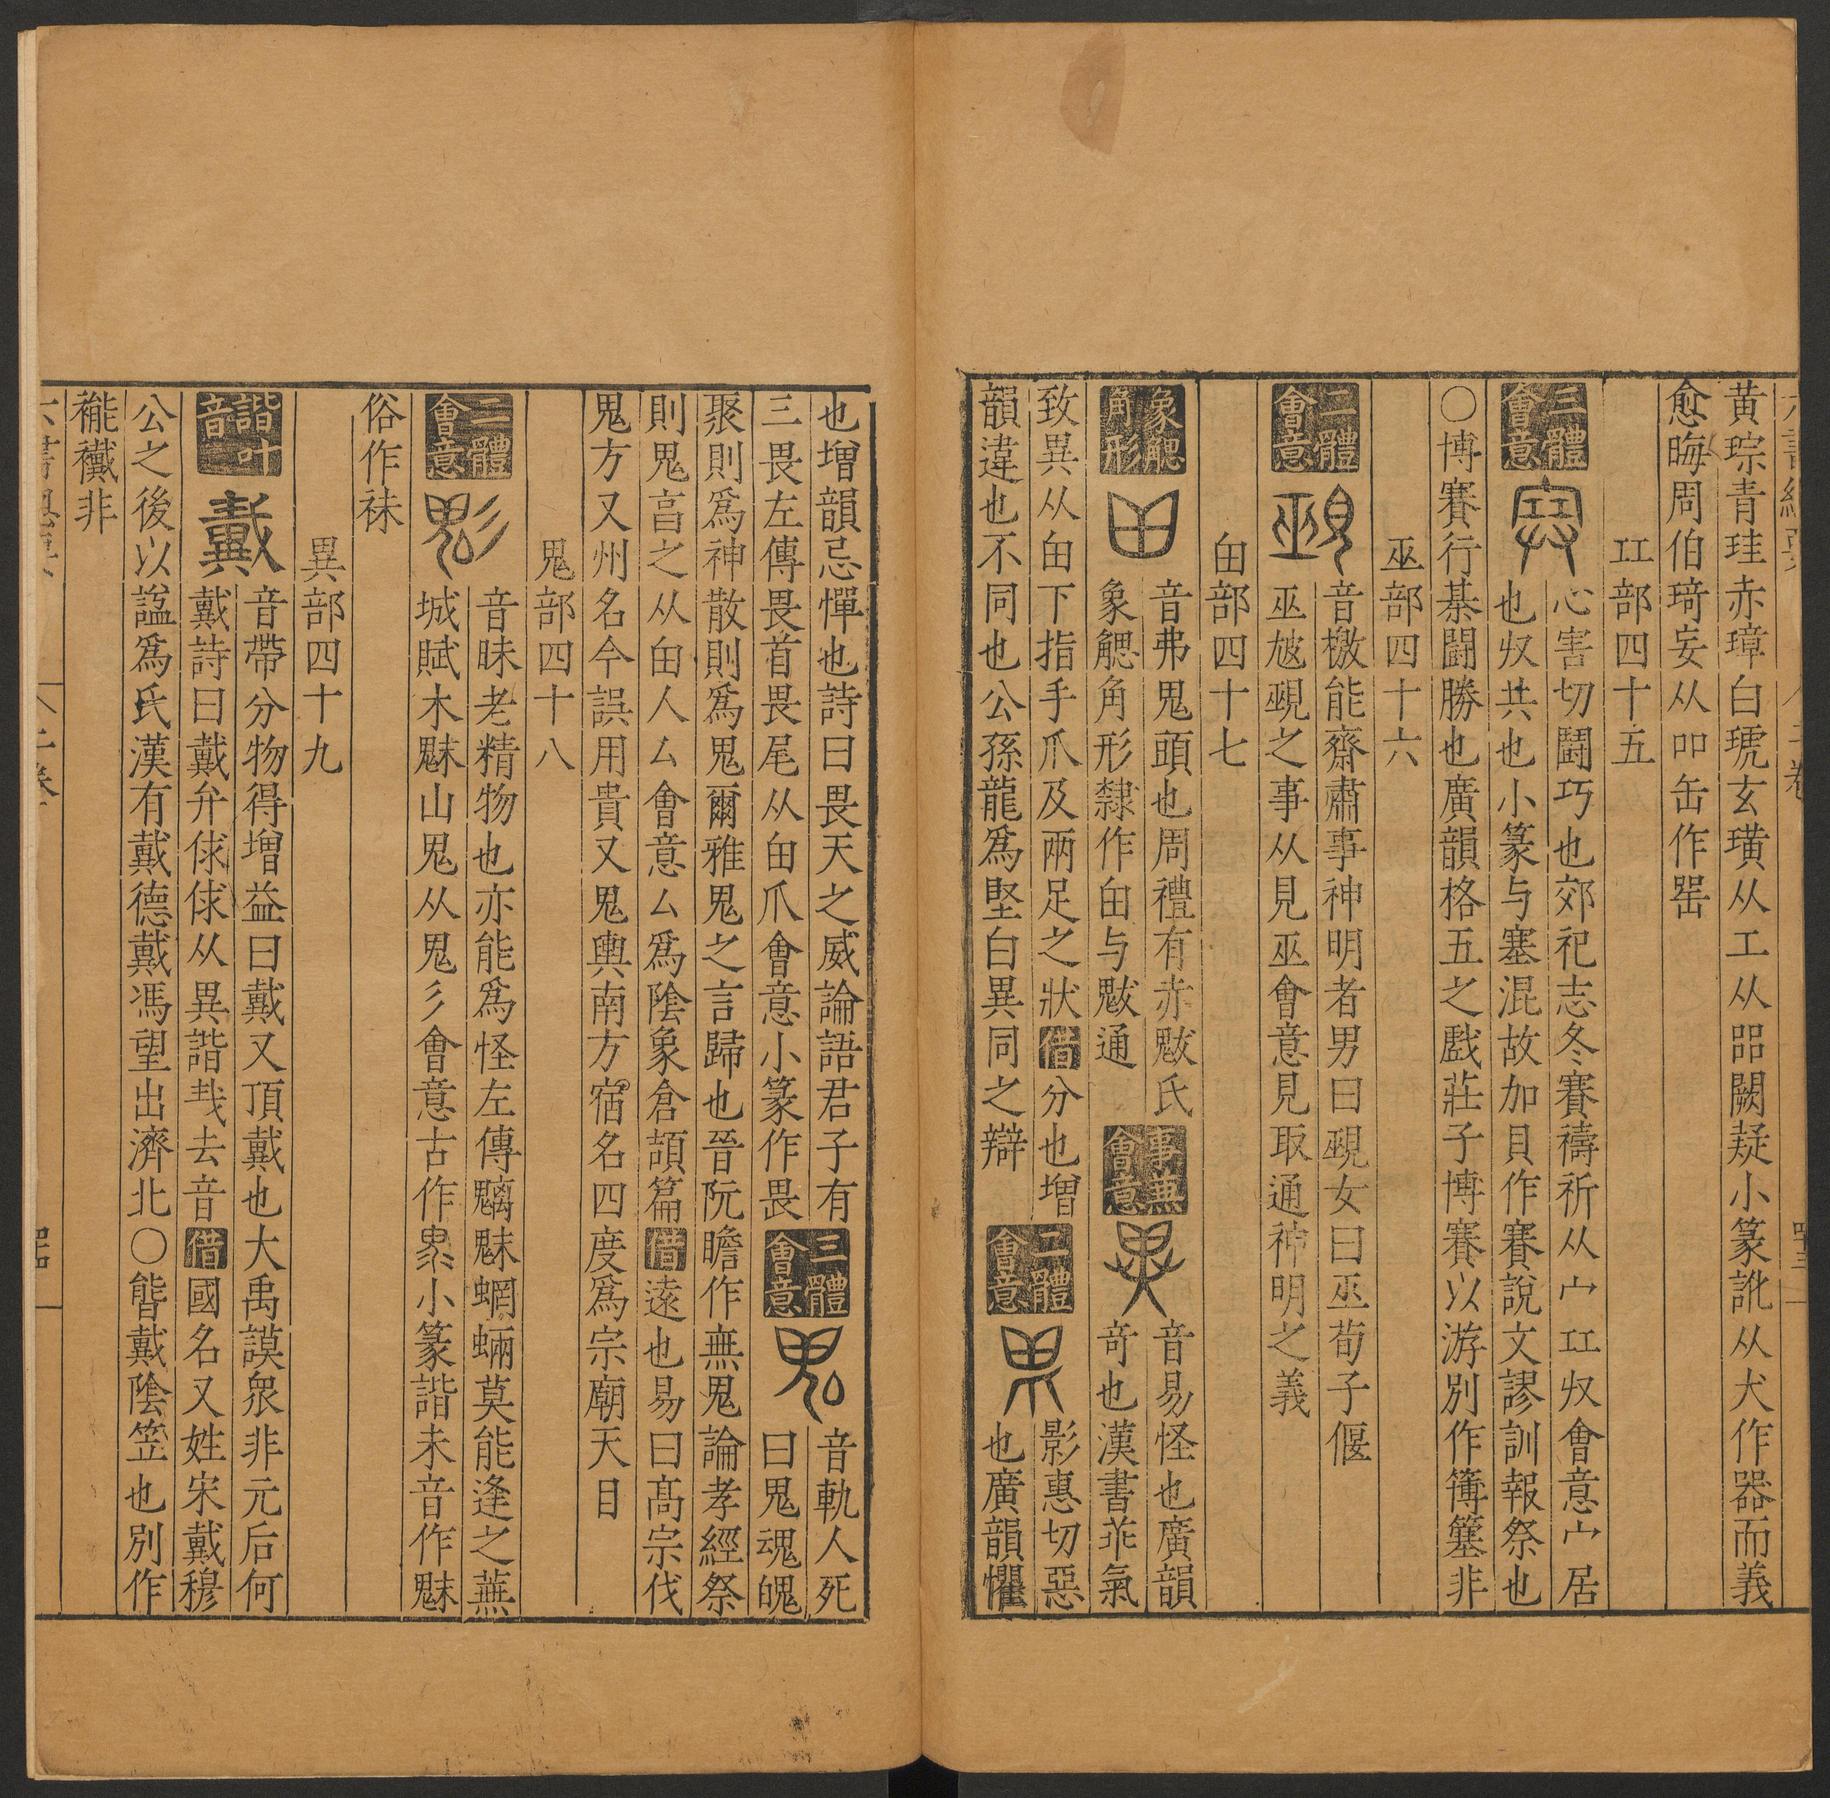 黃琮青珪赤璋白琥玄璜从工从㗊闕疑小篆訛从犬作器而義
愈晦周伯琦妄从吅缶作㗊
㠭部四十五
三體會意
心害切鬪巧也郊祀志冬賽禱祈从宀㠭収會意宀居
也収共也小篆与塞混故加貝作賽說文謬訓報祭也
〇博賽行棊鬪勝也廣韻格五之戲莊子博賽以游別作簙簺非
巫部四十六
二體會意
音檄能齋肅事神明者男曰覡女曰巫荀子傴
巫尪覡之事从見巫會意見取通神明之義
甶部四十七
象鰓角形
音弗鬼頭也周禮有赤魃氏
象鰓角形隸作甶与魃通
事兼會意
音易怪也廣韻
奇也漢書菲氣
致異从甶下指手爪及兩足之狀借分也增
韻違也不同也公孫龍爲堅白異同之辯
二體會意
影惠切惡
也廣韻懼
也增韻忌憚也詩曰畏天之威論語君子有
三畏左傳畏首畏尾从甶爪會意小篆作畏
三體會意
音軌人死
曰鬼魂魄
聚則爲神散則爲鬼爾雅鬼之言歸也晉阮瞻作無鬼論孝經祭
則鬼亯之从甶人厶會意厶爲陰象倉頡篇借遠也易曰高宗伐
鬼方又州名今誤用貴又鬼輿南方宿名四度爲宗廟天目
鬼部四十八
二體會意
音昧老精物也亦能爲怪左傳魑魅蝄蜽莫能逢之蕪
城賦木魅山鬼从鬼彡會意古作㣇小篆諧未音作魅
俗作袜
異部四十九
諧叶音
音帶分物得增益曰戴又頂戴也大禹謨衆非元后何
戴詩曰戴弁俅俅从異諧𢦏去音借國名又姓宋戴穆
公之後以諡爲氏漢有戴德戴馮望出濟北〇㬱戴陰笠也別作
褦襶非